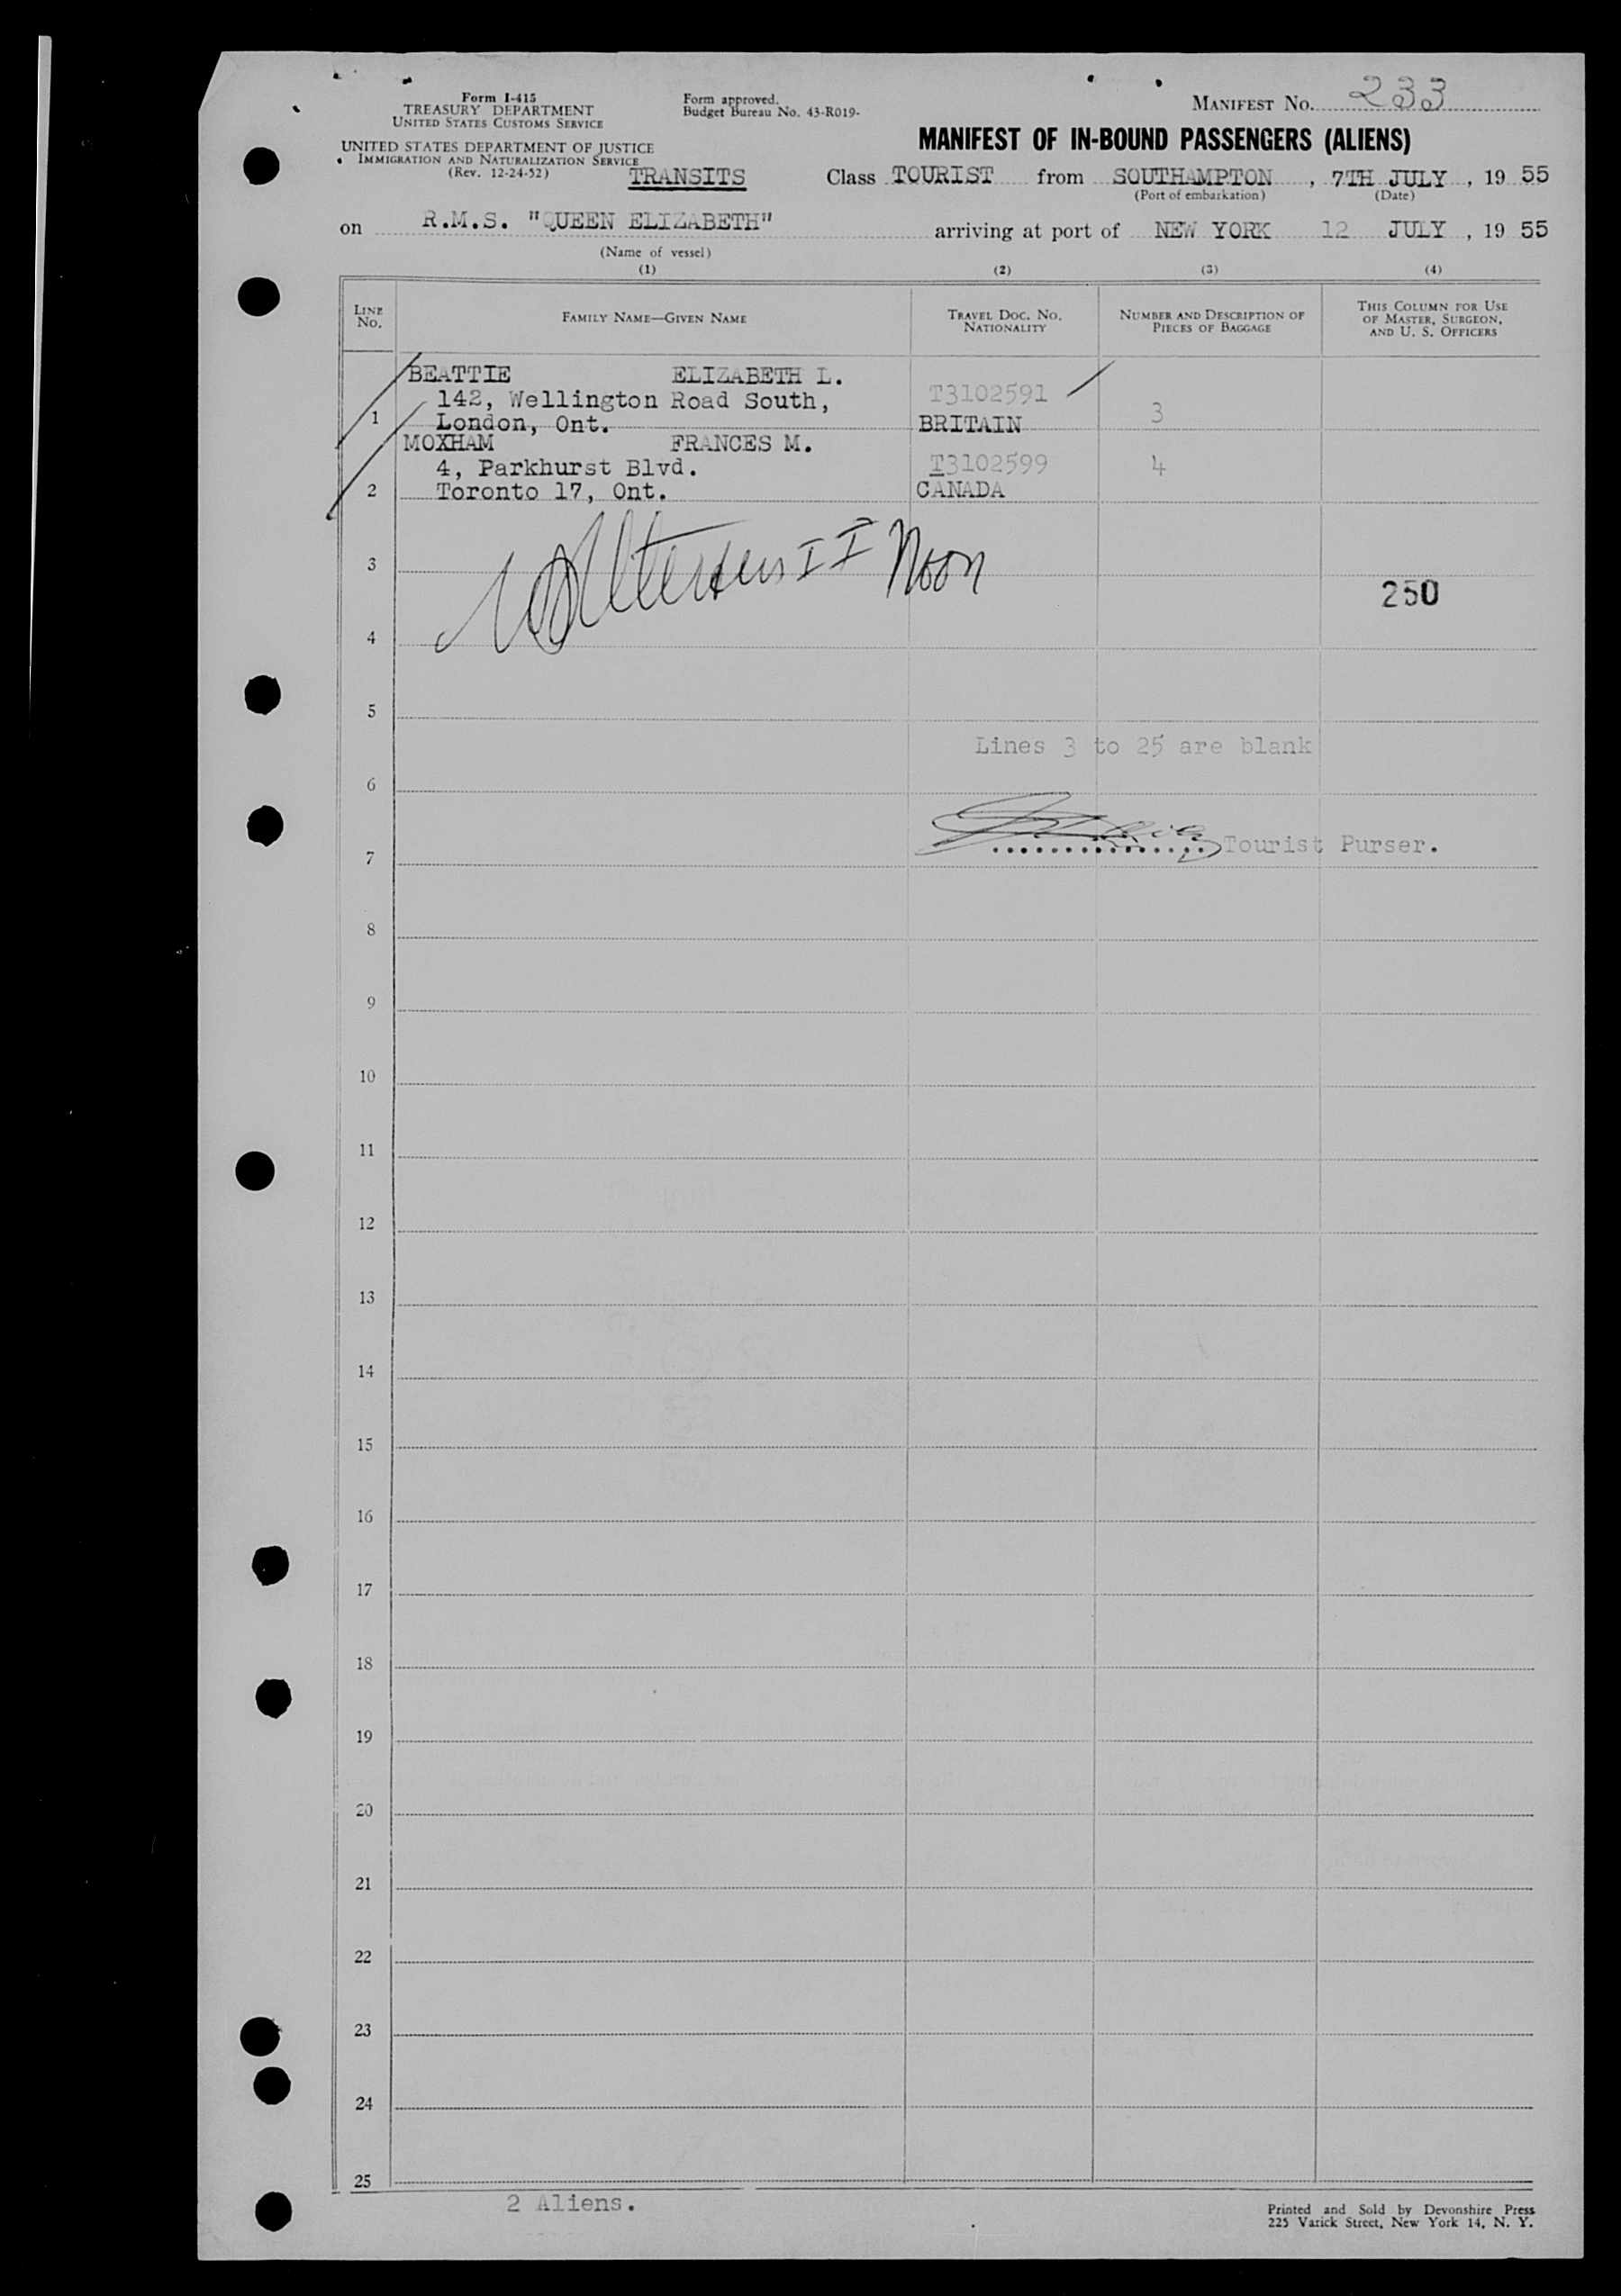 Form I-415
TREASURY DEPARTMENT
UNITED STATES CUSTOMS SERVICE
UNITED STATES DEPARTMENT OF JUSTICE
IMMIGRATION AND NATURALIZATION SERVICE
(Rev. 12-24-52)
Form approved.
Budget Bureau No. 43-R019-
MANIFEST No. 233
MANIFEST OF IN-BOUND PASSENGERS (ALIENS)
TRANSITS Class TOURIST from SOUTHAMPTON, 7TH JULY, 19 55
(Port of embarkation) (Date)
on R.M.S. "QUEEN ELIZABETH" arriving at port of NEW YORK 12 JULY, 19 55
(Name of vessel)
(1) (2) (3) (4)
LINE No. FAMILY NAME—GIVEN NAME TRAVEL DOC. NO. NATIONALITY NUMBER AND DESCRIPTION OF PIECES OF BAGGAGE THIS COLUMN FOR USE OF MASTER, SURGEON, AND U. S. OFFICERS
BEATTIE ELIZABETH L.
142, Wellington Road South, T3102591 3
1 London, Ont. BRITAIN
MOXHAM FRANCES M.
4, Parkhurst Blvd. T3102599 4
2 Toronto 17, Ont. CANADA
II Noon
3
250
4
5
Lines 3 to 25 are blank
6
Tourist Purser.
7
8
9
10
11
12
13
14
15
16
17
18
19
20
21
22
23
24
25
2 Aliens.
Printed and Sold by Devonshire Press
225 Varick Street, New York 14, N. Y.